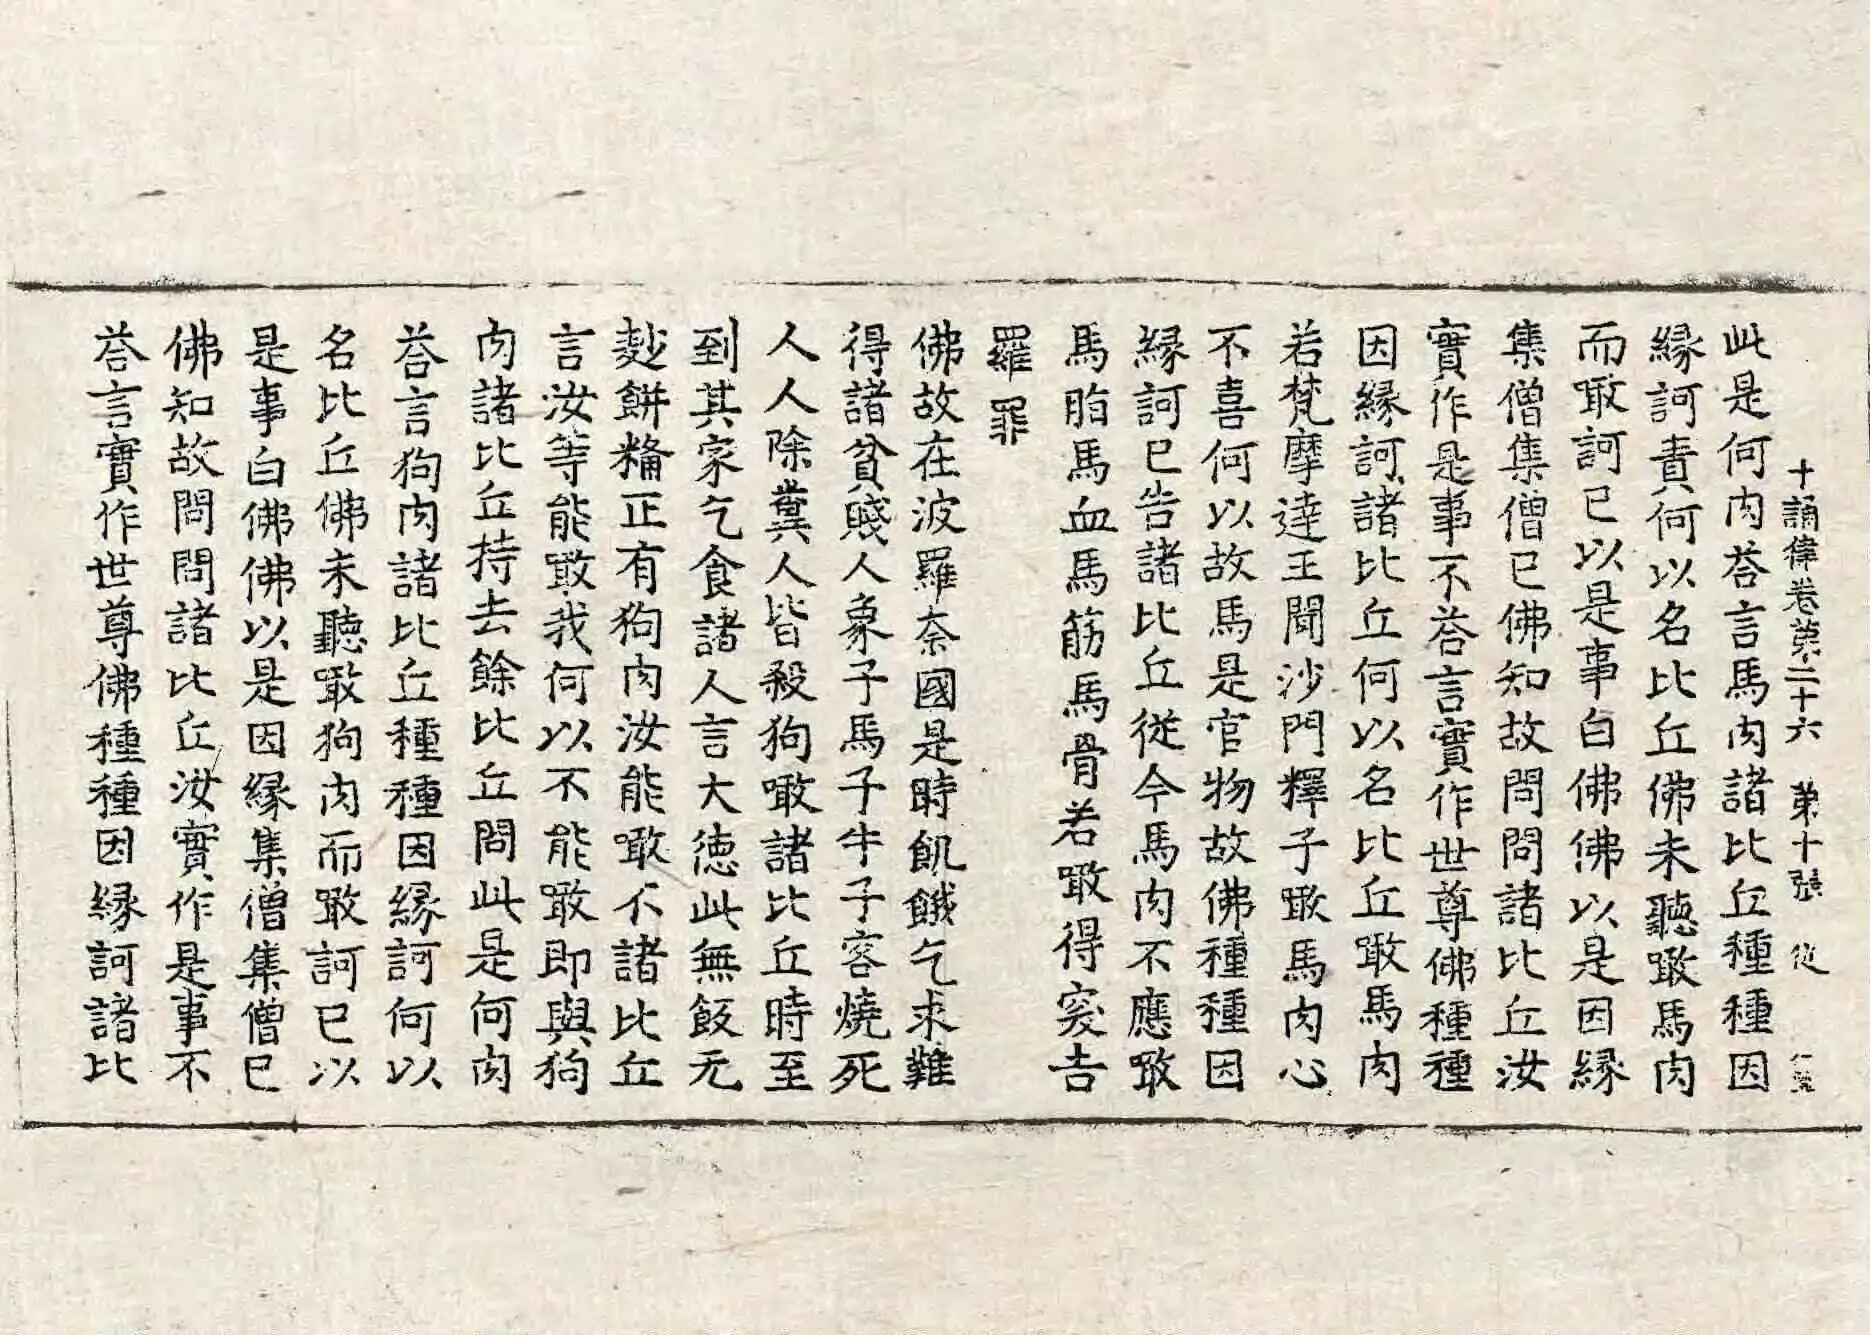 十誦律卷第二十六 第十張 從
此是何肉荅言馬肉諸比丘種種因
緣訶責何以名比丘佛未聽噉馬肉
而噉訶已以是事白佛佛以是因緣
集僧集僧已佛知故問問諸比丘汝
實作是事不荅言實作世尊佛種種
因緣訶諸比丘何以名比丘噉馬肉
若梵摩達王聞沙門釋子噉馬肉心
不喜何以故馬是官物故佛種種因
緣訶已告諸比丘從今馬肉不應噉
馬脂馬血馬筋馬骨若噉得突吉
羅罪
佛故在波羅奈國是時飢餓乞求難
得諸貧賤人象子馬子牛子客燒死
人人除糞人皆殺狗噉諸比丘時至
到其家乞食諸人言大德此無飯无
麨餅糒正有狗肉汝能噉不諸比丘
言汝等能噉我何以不能噉即與狗
肉諸比丘持去餘比丘問此是何肉
荅言狗肉諸比丘種種因緣訶何以
名比丘佛未聽噉狗肉而噉訶已以
是事白佛佛以是因緣集僧集僧已
佛知故問問諸比丘汝實作是事不
荅言實作世尊佛種種因緣訶諸比